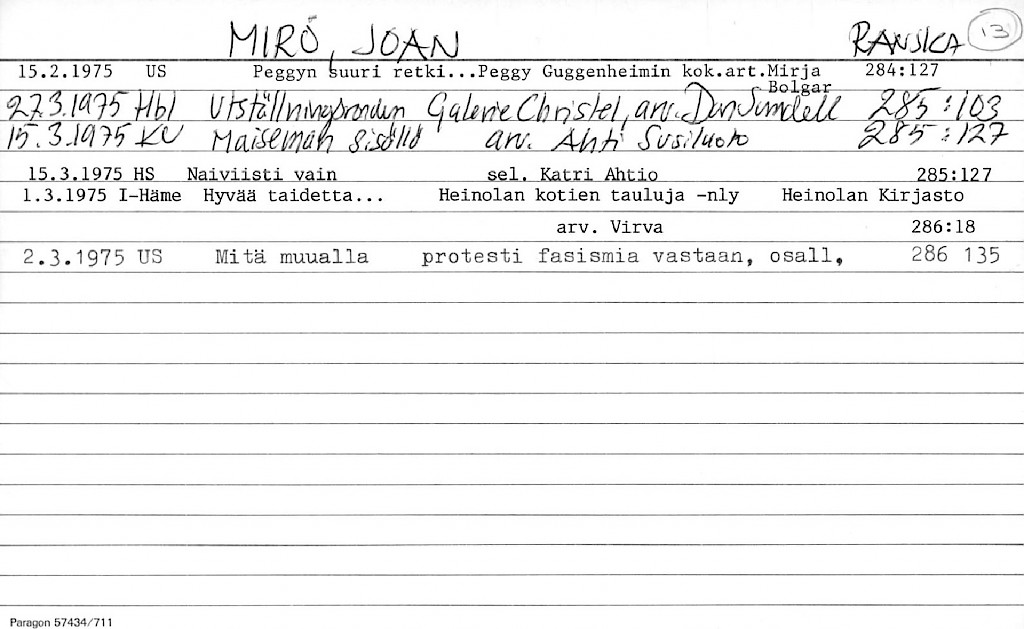 MIRÓ, JOAN RANSKA 13
15.2.1975 US Peggyn suuri retki...Peggy Guggenheimin kok.art.Mirja Bolgar 284:127
27.3.1975 Hbl Utställningsronden Galerie Christel, arv. Dan Sundell 285:103
15.3.1975 KU Maiseman sisällä arv. Ahti Susiluoto 285:127
15.3.1975 HS Naiviisti vain sel. Katri Ahtio 285:127
1.3.1975 I-Häme Hyvää taidetta... Heinolan kotien tauluja -nly Heinolan Kirjasto
arv. Virva 286:18
2.3.1975 US Mitä muualla protesti fasismia vastaan, osall, 286 135
Paragon 57434/711